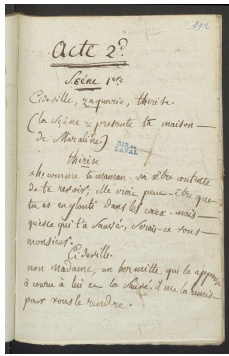 192
Acte 2d
Scène 1ere
Cideville, zaquarie, therèse.
(la scène represente la maison
de Maraline)
BIB.
therèse
ah! comme ta maman va être contente
de te revoir, elle croit peut-être que
tu es englouti dans les eaux. mais
qu'est ce qui t'a sauvé, serait-ce vous
monsieur.
Cideville.
non madame, un hermitte, qui l'a apperçu
a couru à lui et l'a sauvé. il me l'a remis
pour vous le rendre.